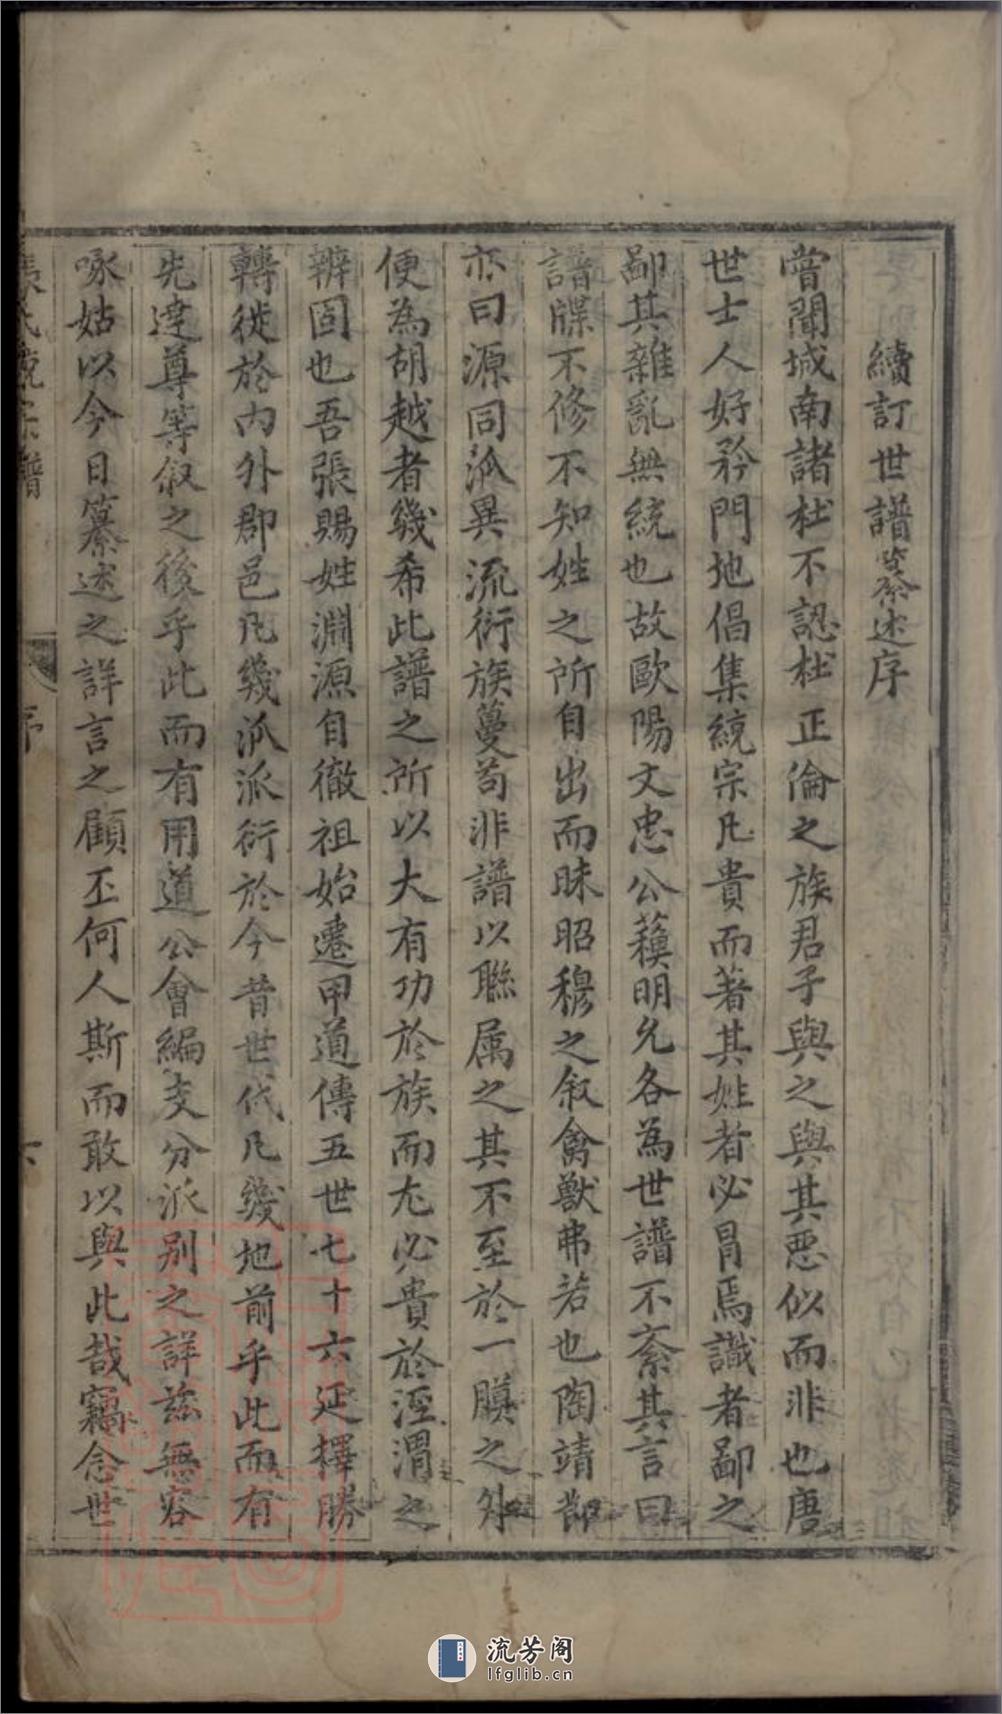 續訂世譜纂述序
嘗聞城南諸杜不認杜正倫之族君子與之與其惡似而非也唐
世士人好矜門地倡集統宗凡貴而著其姓者必冒焉識者鄙之
鄙其雜亂無統也故歐陽文忠公蘓明允各為世譜不紊其言曰
譜牒不修不知姓之所自出而昧昭穆之叙禽獸弗若也陶靖節
亦曰源同泒異流衍族蔓苟非譜以聯属之其不至於一膜之外
便為胡越者幾希此譜之所以大有功於族而尤必貴於涇渭之
辨固也吾張賜姓淵源自徹祖始遷甲道傳五世七十六延擇勝
轉徙於內外郡邑凡幾泒派衍於今昔世代凡幾地前乎此而有
先達尊等叙之後乎此而有用道公會編支分派別之詳兹無容
喙姑以今日纂述之詳言之顧丕何人斯而敢以與此哉竊念世
張氏統宗譜
序
六
流芳阁
lfglib.cn